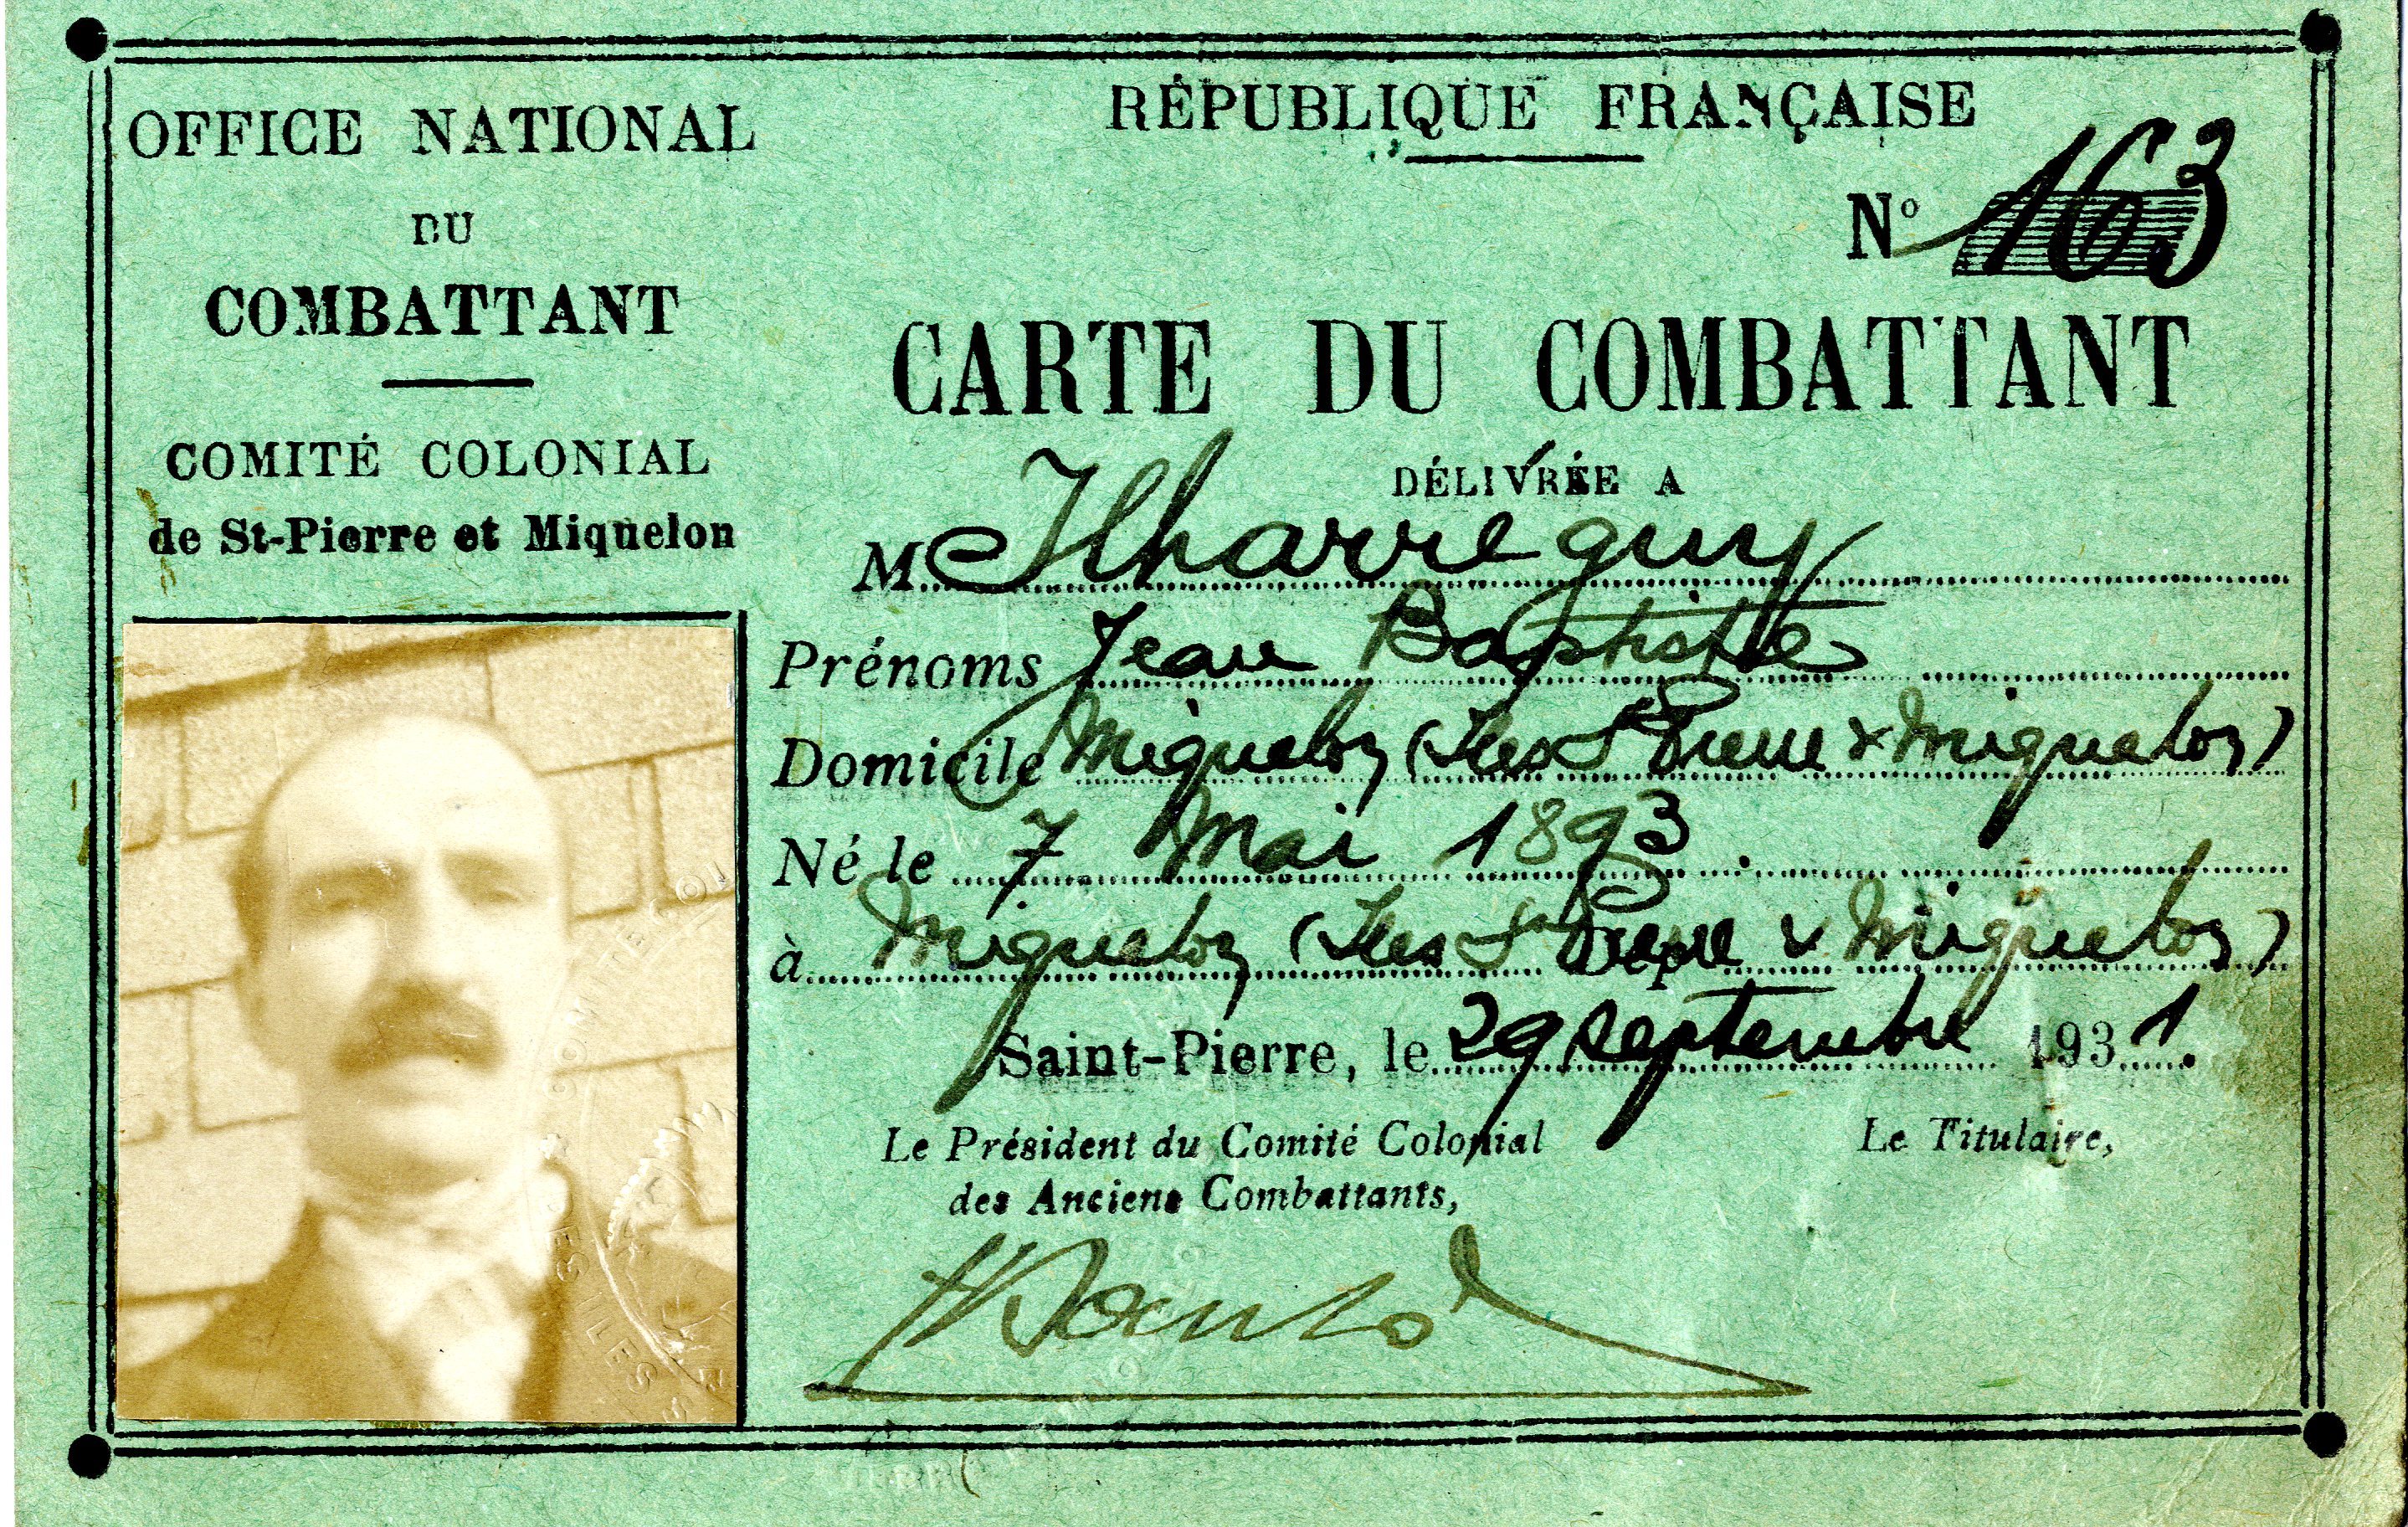 OFFICE NATIONAL
DU
COMBATTANT
COMITÉ COLONIAL
de St-Pierre et Miquelon
RÉPUBLIQUE FRANÇAISE
N° 163
CARTE DU COMBATTANT
DÉLIVRÉE A
M Ilharreguy
Prénoms Jean Baptiste
Domicile Miquelon (Iles St Pierre & Miquelon)
Né le 7 Mai 1893.
à Miquelon (Iles St Pierre & Miquelon)
Saint-Pierre, le 29 septembre 1931.
Le Président du Comité Colonial
des Anciens Combattants,
Le Titulaire,